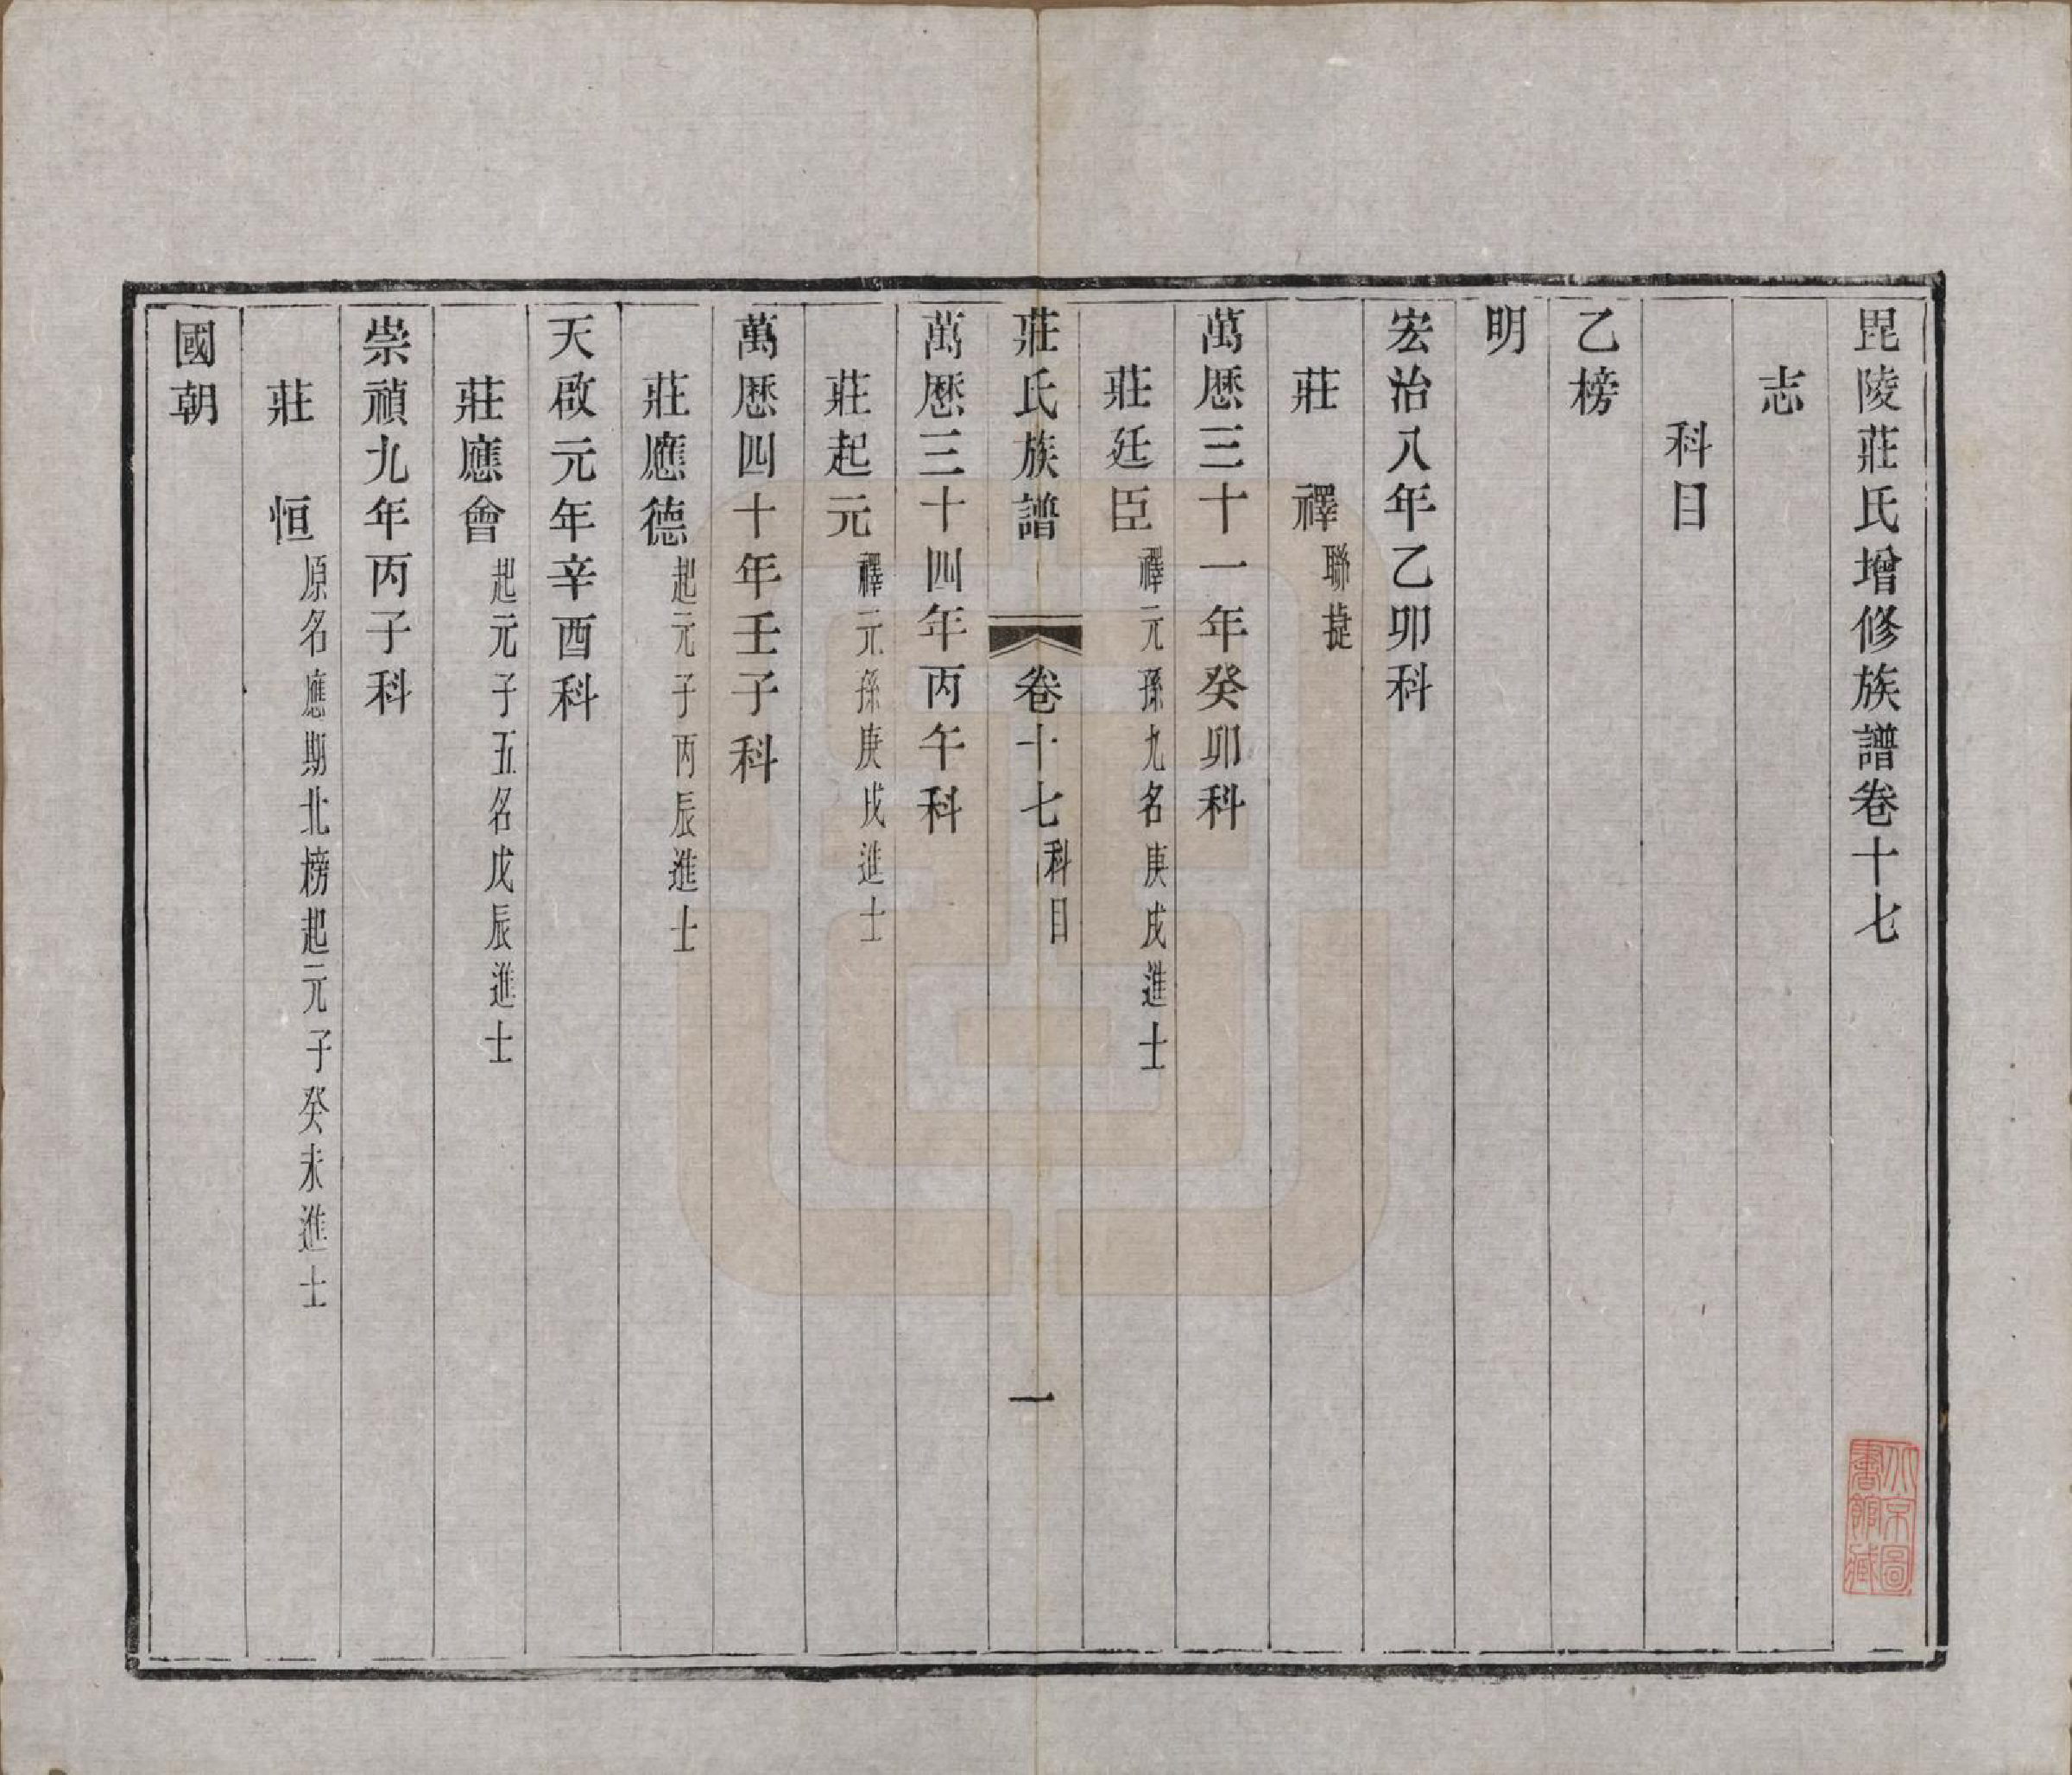 毘陵莊氏增修族譜卷十七
志
科目
乙榜
明
宏治八年乙卯科
莊　禪聯㨗
萬厯三十一年癸卯科
莊廷臣禪元孫九名庚戌進士
莊氏族譜　卷十七科目　一
萬厯三十四年丙午科
莊起元禪元孫庚戌進士
萬厯四十年壬子科
莊應德起元子丙辰進士
天啟元年辛酉科
莊應會起元子五名戊辰進士
崇禎九年丙子科
莊　恒原名應期北榜起元子癸未進士
國朝
北京圖書館藏